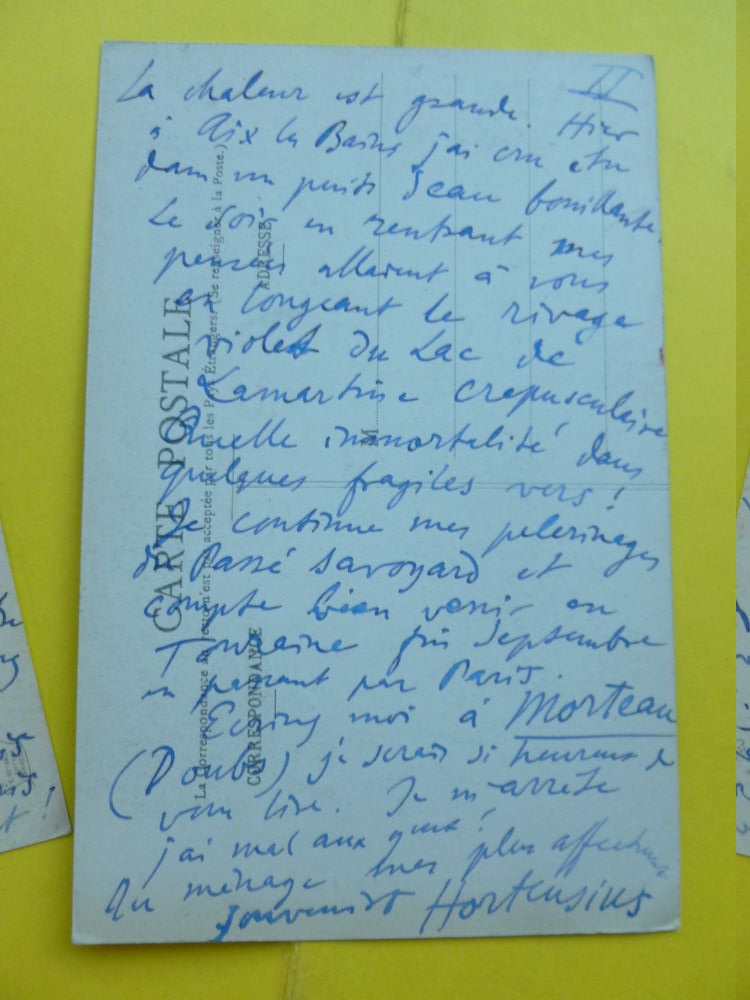 II
La chaleur est grande. Hier
à Aix les Bains j'ai cru être
dans un puits d'eau bouillante.
Le soir en rentrant mes
pensées allaient à vous
en longeant le rivage
violet du Lac de
Lamartine crepusculaire
Quelle immortalité dans
quelques fragiles vers !
Je continue mes pelerinages
du Passé Savoyard et
compte bien venir en
Touraine fin Septembre
en passant par Paris.
Ecrivez moi à Morteau
(Doubs) je serais si heureux de
vous lire. Je m'arrête
j'ai mal aux yeux !
Au ménage mes plus affectueux
souvenirs Hortensius
CARTE POSTALE
La Correspondance au recto n'est pas acceptée par tous les Pays Étrangers. (Se renseigner à la Poste.)
CORRESPONDANCE
ADRESSE
M